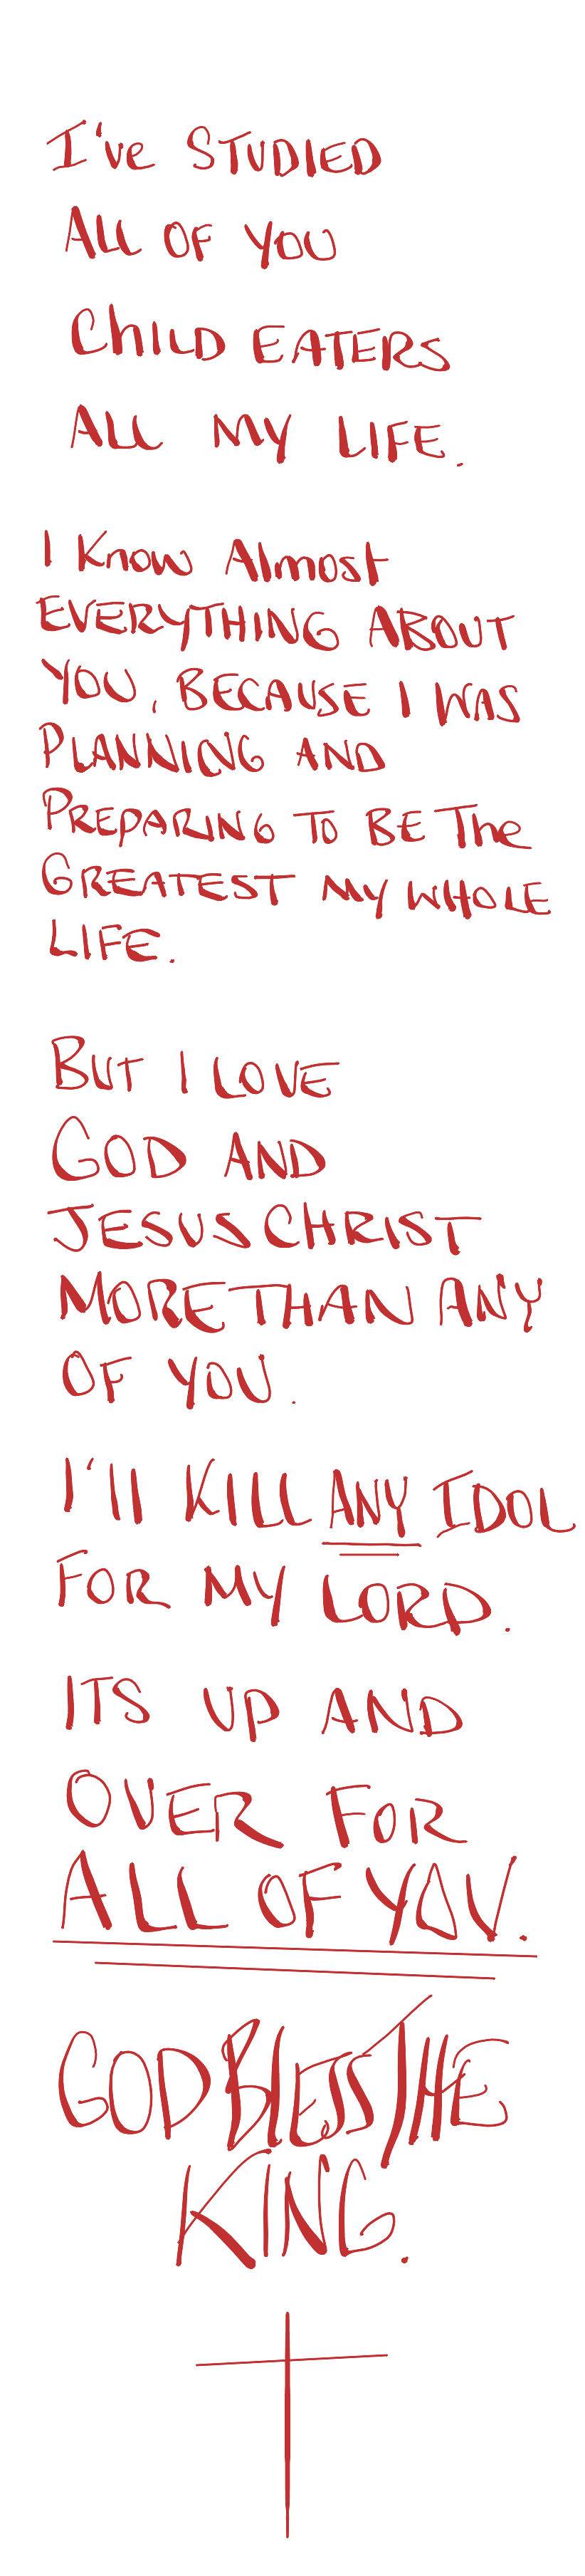 I've STUDIED
ALL OF YOU
ChILD EATERS
ALL MY LIFE.
I Know Almost
EVERYTHING ABOUT
YOU, BECAUSE I WAS
PLANNING AND
PREPARING TO BE The
GREATEST MY WHOLE
LIFE.
BUT I LOVE
GOD AND
JESUS CHRIST
MORE THAN ANY
OF YOU.
I'll KILL ANY IDOL
FOR MY LORD.
ITS UP AND
OVER FOR
ALL OF YOU.
GOD BLESS THE
KING.